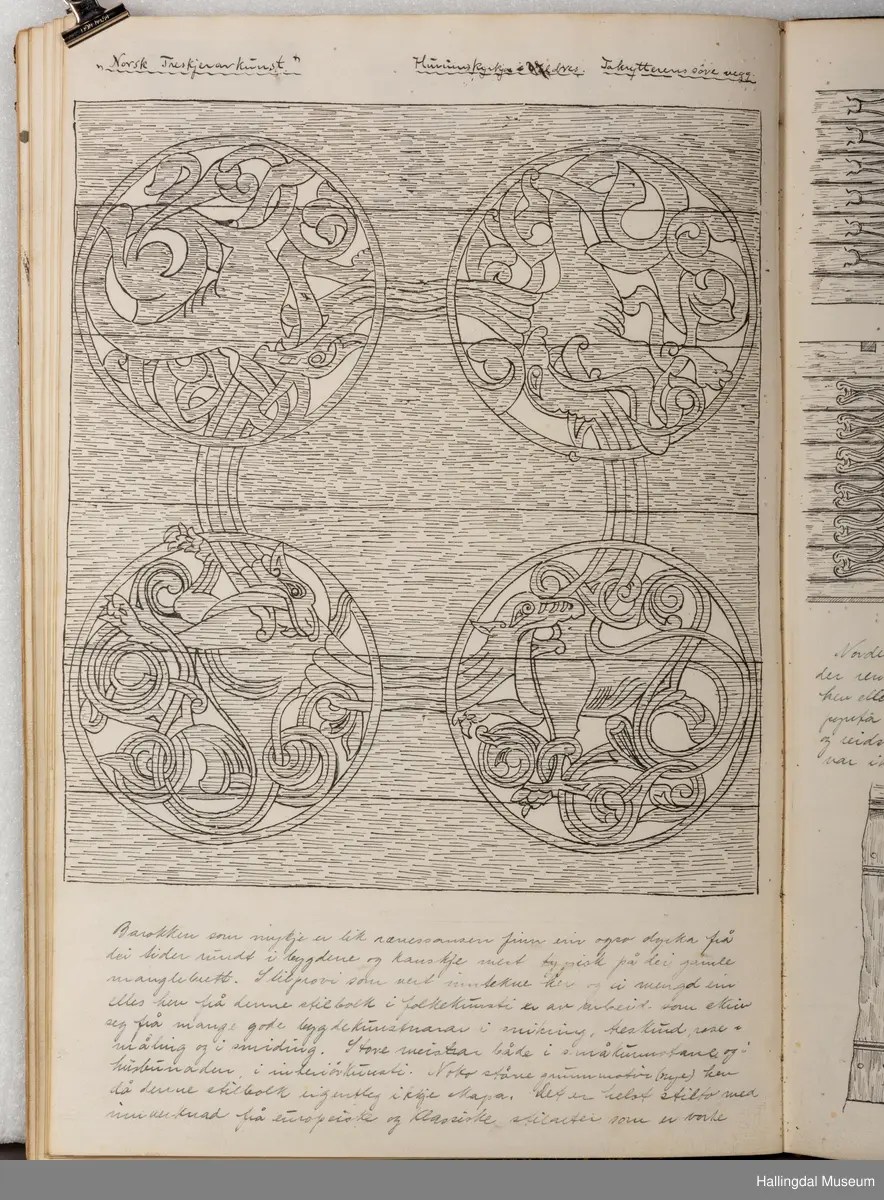 "Norsk Treskjerarkunst" Hurumskyrkja i Valdres. Takrytterens söre vegg.
Barokken som mykje er lik renessansen finn ein ogso dyrka frå
dei tider rundt i bygdene og kanskje mest typisk på dei gamle
manglebrett. Stilprovi som vert inntekne her og ei mengd ein
elles hev frå denne stilbolk i folkekunsti er av arbeid som skriv
seg frå mange gode bygdekunstnarar i snikring, treskurd, rose=
måling og i smiding. Store meistrar både i småkunstane og i
husbunaden, i interiörkunsti. Noko större grunnmotiv (nye) hev
då denne stilbolk eigentleg ikkje skapa. Det er helst stilto med
innverknad frå europeiske og klassiske stilarter som er vorte
Norde
der ren
hev elle
og reids
var i
Hallingdal Museum